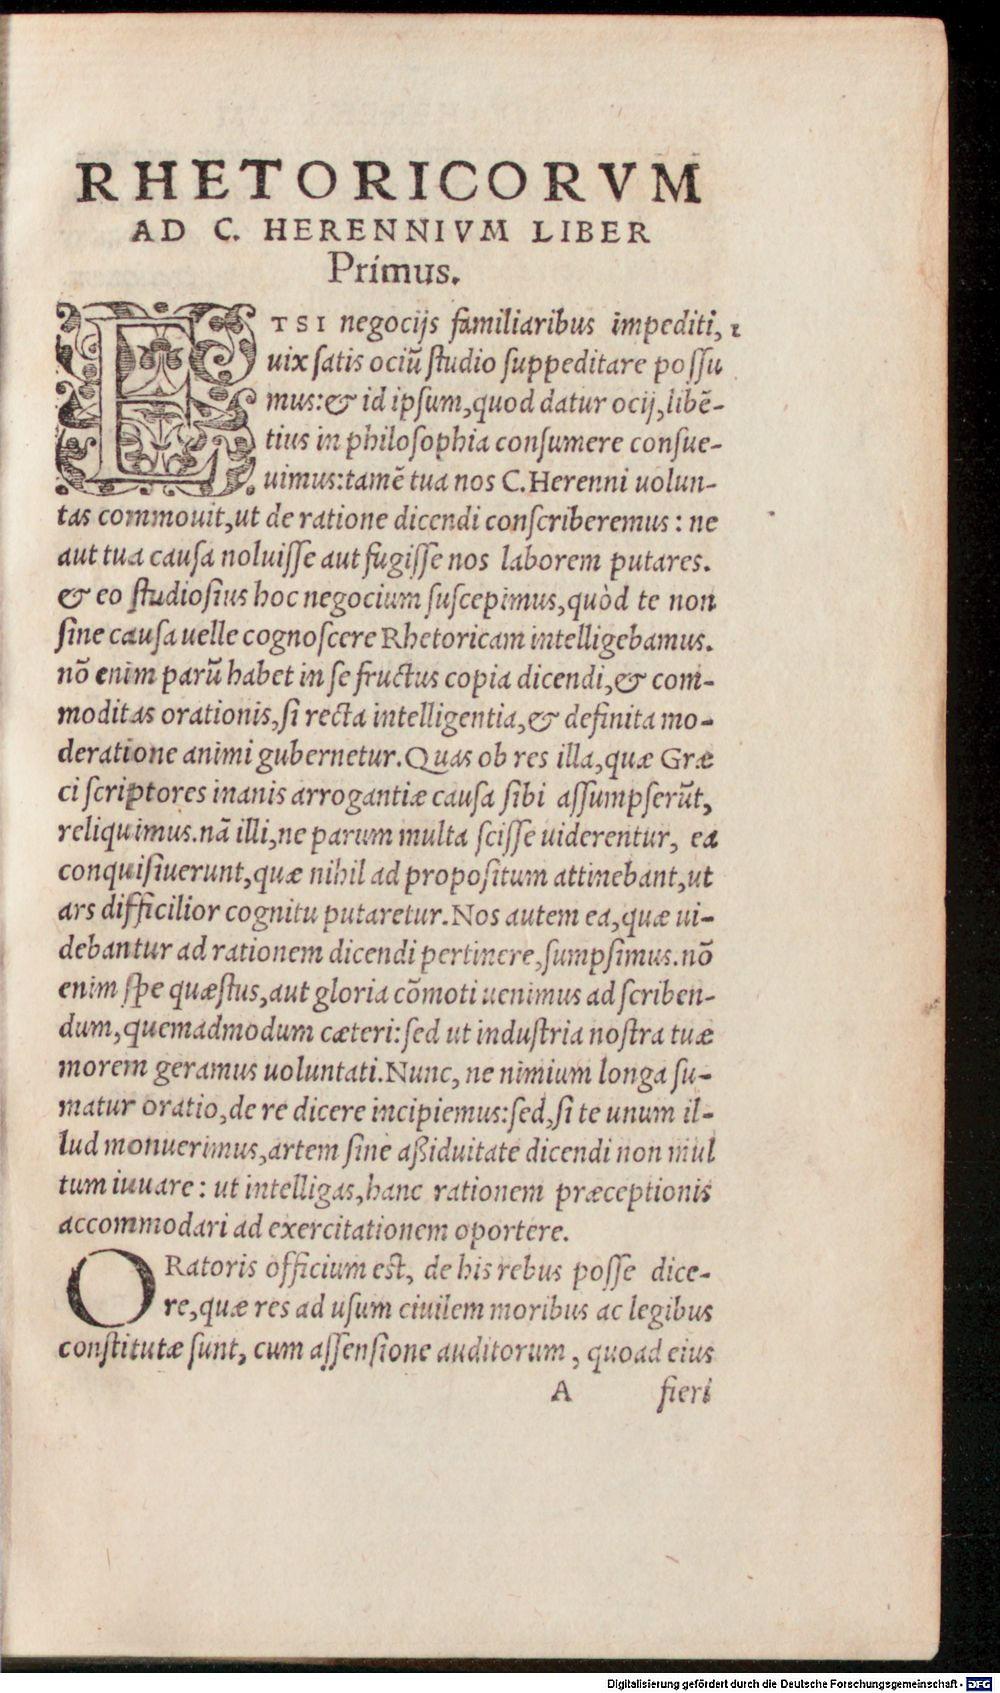 RHETORICORVM
AD C. HERENNIVM LIBER
Primus.
ETSI negocijs familiaribus impediti, 1
uix satis ociũ studio suppeditare possu
mus: & id ipsum, quod datur ocij, libẽ-
tius in philosophia consumere consue-
uimus: tamẽ tua nos C. Herenni uolun-
tas commouit, ut de ratione dicendi conscriberemus: ne
aut tua causa noluisse aut fugisse nos laborem putares.
& eo studiosius hoc negocium suscepimus, quòd te non
sine causa uelle cognoscere Rhetoricam intelligebamus.
nõ enim parũ habet in se fructus copia dicendi, & com-
moditas orationis, si recta intelligentia, & definita mo-
deratione animi gubernetur. Quas ob res illa, quæ Græ
ci scriptores inanis arrogantiæ causa sibi assumpserũt,
reliquimus. nã illi, ne parum multa scisse uiderentur, ea
conquisiuerunt, quæ nihil ad propositum attinebant, ut
ars difficilior cognitu putaretur. Nos autem ea, quæ ui-
debantur ad rationem dicendi pertinere, sumpsimus. nõ
enim spe quæstus, aut gloria cõmoti uenimus ad scriben-
dum, quemadmodum cæteri: sed ut industria nostra tuæ
morem geramus uoluntati. Nunc, ne nimium longa su-
matur oratio, de re dicere incipiemus: sed, si te unum il-
lud monuerimus, artem sine aßiduitate dicendi non mul
tum iuuare: ut intelligas, hanc rationem præceptionis
accommodari ad exercitationem oportere.
ORatoris officium est, de his rebus posse dice-
re, quæ res ad usum ciuilem moribus ac legibus
constitutæ sunt, cum assensione auditorum, quoad eius
A fieri
Digitalisierung gefördert durch die Deutsche Forschungsgemeinschaft - DFG